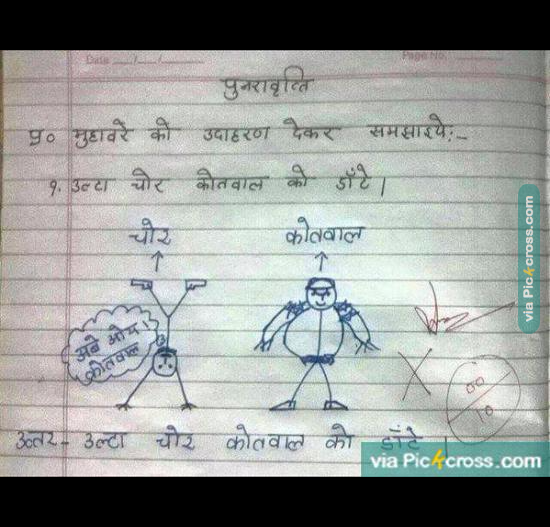 Date ___/___/___
Page No.
पुनरावृत्ति
प्र० मुहावरे को उदाहरण देकर समझाइये:-
१. उल्टा चोर कोतवाल को डाँटे |
चोर
कोतवाल
अबे ओय !
कोतवाल
00
10
उत्तर - उल्टा चोर कोतवाल को डाँटे |
via Pic4cross.com
via Pic4cross.com